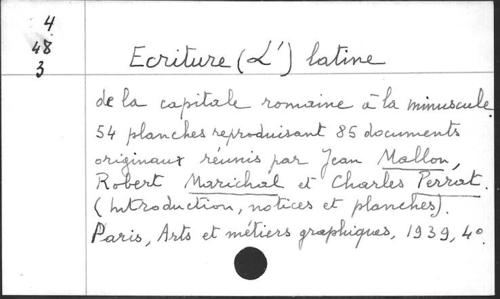 4
48
3
Ecriture (L') latine
de la capitale romaine à la minuscule.
54 planches reproduisant 85 documents
originaux réunis par Jean Mallon,
Robert Marichal et Charles Perrat.
(Introduction, notices et planches).
Paris, Arts et métiers graphiques, 1939, 4°.